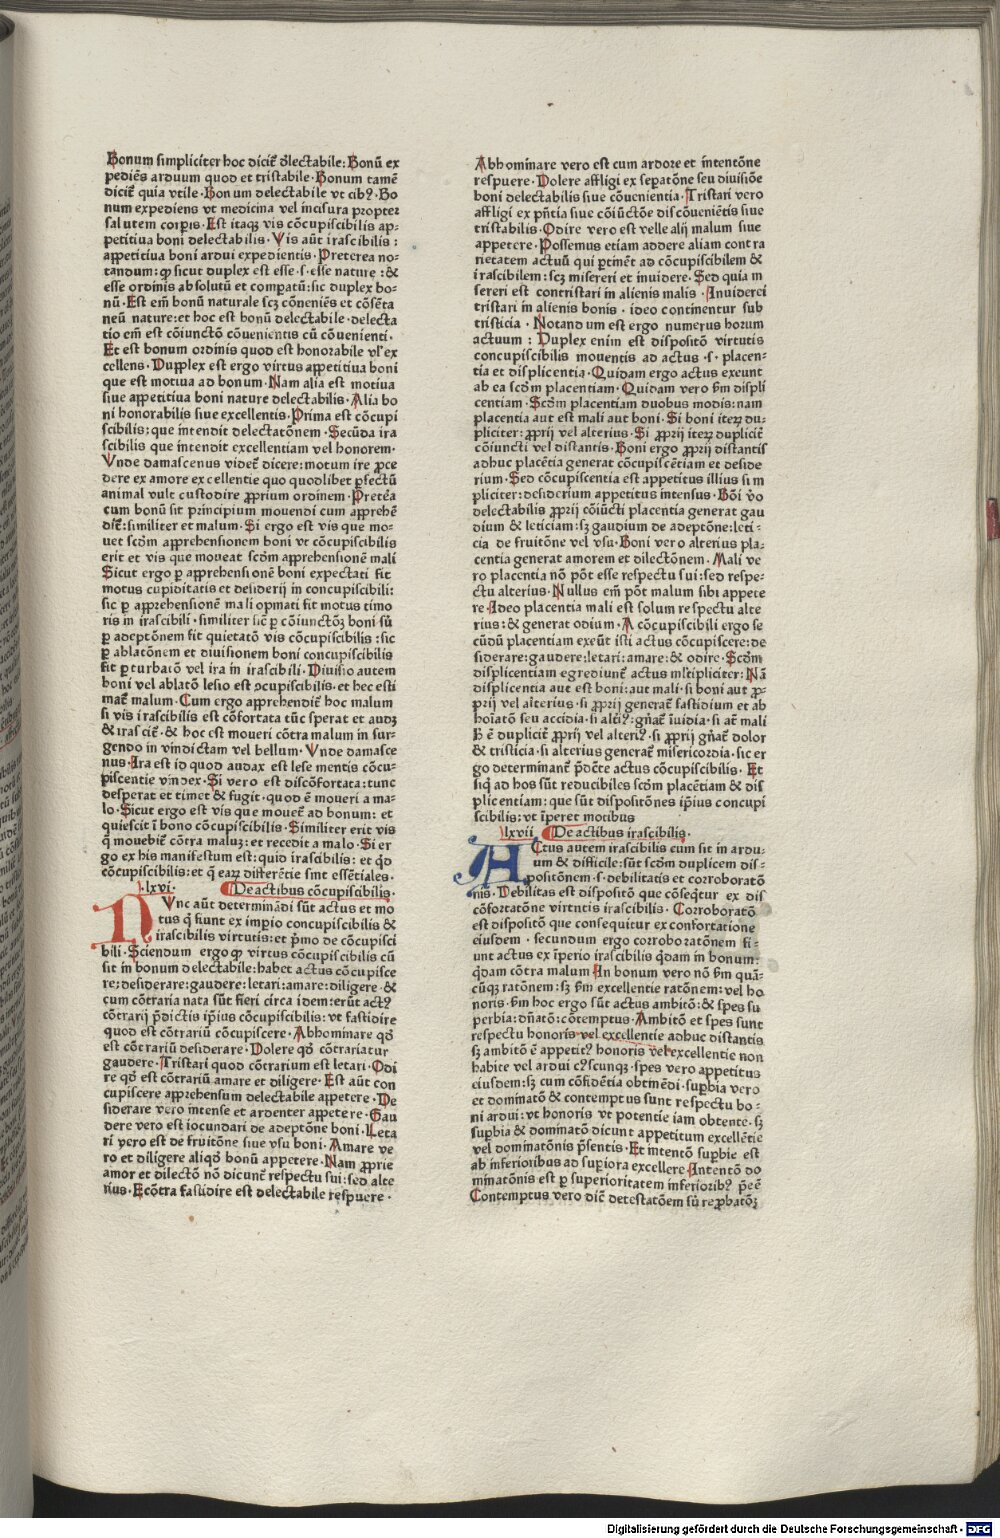 Bonum simpliciter hoc dicit᷑ d̉lectabile: Bonũ ex
pediẽs arduum quod et tristabile · Bonum tamẽ
dicit᷑ quia vtile · Bonum delectabile vt cibꝰ. Bo
num expediens vt medicina vel incisura propter
salutem corpis · Est itaqꝫ vis cõcupiscibilis ap-
petitiua boni delectabilis · Vis aũt irascibilis :
appetitiua boni ardui expedientis · Preterea no-
tandum: ꝙ sicut duplex est esse · s · esse nature : &
esse ordinis absolutũ et compatũ: sic duplex bo-
nũ · Est em̃ bonũ naturale scꝫ cõneniẽs et cõsẽta
neũ nature: et hoc est bonũ delectabile · delecta
tio em̃ est cõiunctõ cõuenientis cũ cõuenienti ·
Et est bonum ordinis quod est honorabile vl̕ ex
cellens · Dupplex est ergo virtus appetitiua boni
que est motiua ad bonum · Nam alia est motiua
siue appetitiua boni nature delectabilis · Alia bo
ni honorabilis siue excellentis · Prima est cõcupi
scibilis: que intendit delectatõnem · Secũda ira
scibilis que intendit excellentiam vel honorem ·
Vnde damascenus videt᷑ dicere: motum ire ꝓce
dere ex amore excellentie quo quodlibet ꝑfectũ
animal vult custodire ꝓprium ordinem · Preteȓa
cum bonũ sit principium mouendi cum apprehẽ
dit᷑: similiter et malum · Si ergo est vis que mo-
uet scd̃m apprehensionem boni vt cõcupiscibilis
erit et vis que moueat scd̃m apprehensionẽ mali
Sicut ergo ꝑ apprehensionẽ boni expectati fit
motus cupiditatis et desiderij in concupiscibili:
sic ꝑ apprehensionẽ mali opinati fit motus timo
ris in irascibili · similiter sic̃ ꝑ cõiunctõꝫ boni sũ
ꝑ adeptõnem fit quietatõ vis cõcupiscibilis : sic
ꝑ ablatõnem et diuisionem boni concupiscibilis
fit ꝑturbatõ vel ira in irascibili · Diuisio autem
boni vel ablatõ lesio est ꝯcupiscibilis · et hec esti
mat᷑ malum · Cum ergo apprehendit᷑ hoc malum
si vis irascibilis est cõfortata tũc sperat et audꝫ
& irascit᷑ · & hoc est moueri cõtra malum in sur-
gendo in vindictam vel bellum · Vnde damasce
nus · Ira est id quod audax est lese mentis cõcu-
piscentie vindex · Si vero est discõfortata: tunc
desperat et timet & fugit · quod ẽ moueri a ma-
lo · Sicut ergo est vis que mouet᷑ ad bonum: et
quiescit ĩ bono cõcupiscibilis · Similiter erit vis
q̃ mouebit᷑ cõtra maluꝫ: et recedit a malo · Si er
go ex his manifestum est: quid irascibilis: et qď
cõcupiscibilis: et q̃ eaꝝ differẽtie sint essẽtiales ·
· lxvi · ¶ De actibus cõcupiscibilis ·
NVnc aũt determinãdi sũt actus et mo
tus q̃ fiunt ex impio concupiscibilis &
irascibilis virtutis: et p̃mo de cõcupisci
bili · Sciendum ergo ꝙ virtus cõcupiscibilis cũ
sit in bonum delectabile: habet actus cõcupisce
re; desiderare: gaudere: letari: amare: diligere · &
cum cõtraria nata sũt fieri circa idem: erũt actꝰ
cõtrarij p̃dictis ip̃ius cõcupiscibilis: vt fastidire
quod est cõtrariũ cõcupiscere · Abhominare qď
est cõtrariũ desiderare · Dolere qď cõtrariatur
gaudere · Tristari quod cõtrarium est letari · Odi
re qď est cõtrariũ amare et diligere · Est aũt con
cupiscere apprehensum delectabile appetere · De
siderare vero intense et ardenter appetere · Gau
dere vero est iocundari de adeptõne boni · Leta
ri vero est de fruitõne siue vsu boni · Amare ve
ro et diligere aliqď bonũ appetere · Nam ꝓprie
amor et dilectõ nõ dicunt᷑ respectu sui: sed alte
rius · Ecõtra fastidire est delectabile respuere ·
Abhominare vero est cum ardore et intentõne
respuere · Dolere affligi ex sepatõne seu diuisiõe
boni delectabilis siue cõuenientia · Tristari vero
affligi ex p̃ntia siue cõiũctõe discõueniẽtis siue
tristabilis · Odire vero est velle alij malum siue
appetere · Possemus etiam addere aliam contra
rietatem actuũ qui ꝑtinẽt ad cõcupiscibilem &
irascibilem: scꝫ misereri et inuidere · Sed quia m
isereri est contristari in alienis malis · Inuiderei
tristari in alienis bonis · ideo continentur sub
tristicia · Notandum est ergo numerus horum
actuum : Duplex enim est dispositõ virtutis
concupiscibilis mouentis ad actus · s · placen-
tia et displicentia · Quidam ergo actus exeunt
ab ea scd̃m placentiam · Quidam vero ẜm displi
centiam · Scd̃m placentiam duobus modis: nam
placentia aut est mali aut boni · Si boni iteꝝ du-
pliciter: ꝓprij vel alterius · Si ꝓprij iteꝝ duplicit᷑
cõiuncti vel distantis · Boni ergo ꝓprij distantis
adhuc placẽtia generat cõcupiscẽtiam et deside
rium · Sed cõcupiscentia est appetitus illius sim
pliciter: desiderium appetitus intensus · Bõi ṽo
delectabilis ꝓprij cõiũcti placentia generat gau
dium & leticiam: sꝫ gaudium de adeptõne: leti-
cia de fruitõne vel vsu · Boni vero alterius pla-
centia generat amorem et dilectõnem · Mali ve
ro placentia nõ põt esse respectu sui: sed respe-
ctu alterius · Nullus em̃ põt malum sibi appete
re · Ideo placentia mali est solum respectu alte
rius: & generat odium · A cõcupiscibili ergo se
cũdũ placentiam exeũt isti actus cõcupiscere: de
siderare: gaudere: letari: amare: & odire · Scd̃m
displicentiam egrediunt᷑ actus ml̕tipliciter: Nã
displicentia aut est boni: aut mali · si boni aut ꝓ-
prij vel alterius · si ꝓprij generat᷑ fastidium et ab
hoĩatõ seu accidia · si altiꝰ: gñat᷑ ĩuidia · si aũt mali
ẜ ẽ duplicit᷑ ꝓprij vel alteriꝰ · si ꝓprij gñat᷑ dolor
& tristicia · si alterius generat᷑ misericordia · sic er
go determinant᷑ p̃dẽte actus cõcupiscibilis · Et
siq̃ ad hos sũt reducibiles scd̃m placẽtiam & dis
plicentiam: que sũt dispositõnes ip̃ius concupi
scibilis: vt ĩperet motibus
lxvii · ¶ De actibus irascibilis ·
ACtus autem irascibilis cum sit in ardu-
um & difficile: sũt scd̃m duplicem dis-
positõnem · s · debilitatis et corroboratõ
nis · Debilitas est dispositõ que cõseq̃tur ex dis
cõfortatõne virtutis irascibilis · Corroboratõ
est dispositõ que consequitur ex confortatione
eiusdem · secundum ergo corroboratõnem fi-
unt actus ex ĩperio irascibilis q̃dam in bonum:
q̃dam cõtra malum In bonum vero nõ ẜm quã-
cũqꝫ ratõnem: sꝫ ẜm excellentie ratõnem: vel ho
noris · ẜm hoc ergo sũt actus ambitõ: & spes su
perbia: dñatõ: cõtemptus · Ambitõ et spes sunt
respectu honoris vel excellentie adhuc distantis
sꝫ ambitõ ẽ appetitꝰ honoris vel excellentie non
habite vel ardui cꝰcunqꝫ · spes vero appetitus
eiusdem: sꝫ cum cõfidẽtia obtinẽdi · suꝑbia vero
et dominatõ & contemptus sunt respectu bo-
ni ardui: vt honoris vt potentie iam obtente · sꝫ
suꝑbia & dominatõ dicunt appetitum excellẽtie
vel dominatõnis p̃sentis · Et intentõ suꝑbie est
ab inferioribus ad suꝑiora excellere Intentõ do
minatõnis est ꝑ superioritatem inferioribꝰ p̃eẽ
Contemptus vero diẽ detestatõem siũ reꝓbatõꝫ
Digitalisierung gefördert durch die Deutsche Forschungsgemeinschaft - DFG